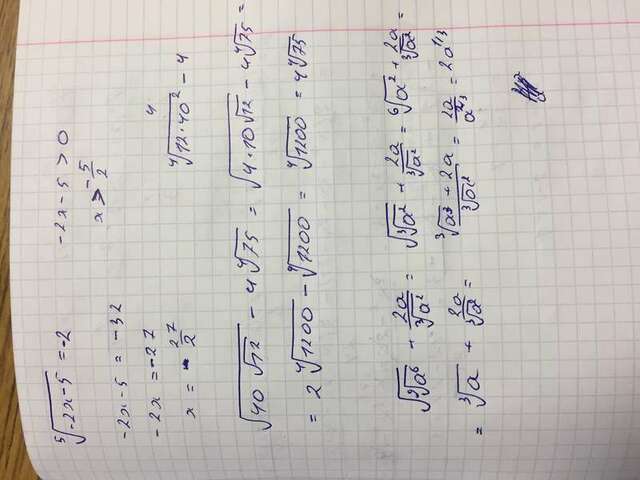 ⁵√(-2x-5) = -2    -2x-5 > 0
x > -5/2
-2x-5 = -32
-2x = -27    4
x = -27/2    ⁴√(12·40²) - 4
√(40√12) - 4⁴√75 = √(4·10√12) - 4⁴√75 =
= 2⁴√1200 - ⁴√1200 = ⁴√1200 = 4⁴√75
+ 2a/∛a² = √(∛a²) + 2a/∛a² = ⁶√a² + 2a/∛a² =
= ∛a + 2a/∛a² = (∛a³ + 2a)/∛a² = 2a/a^(2/3) = 2a^(1/3)